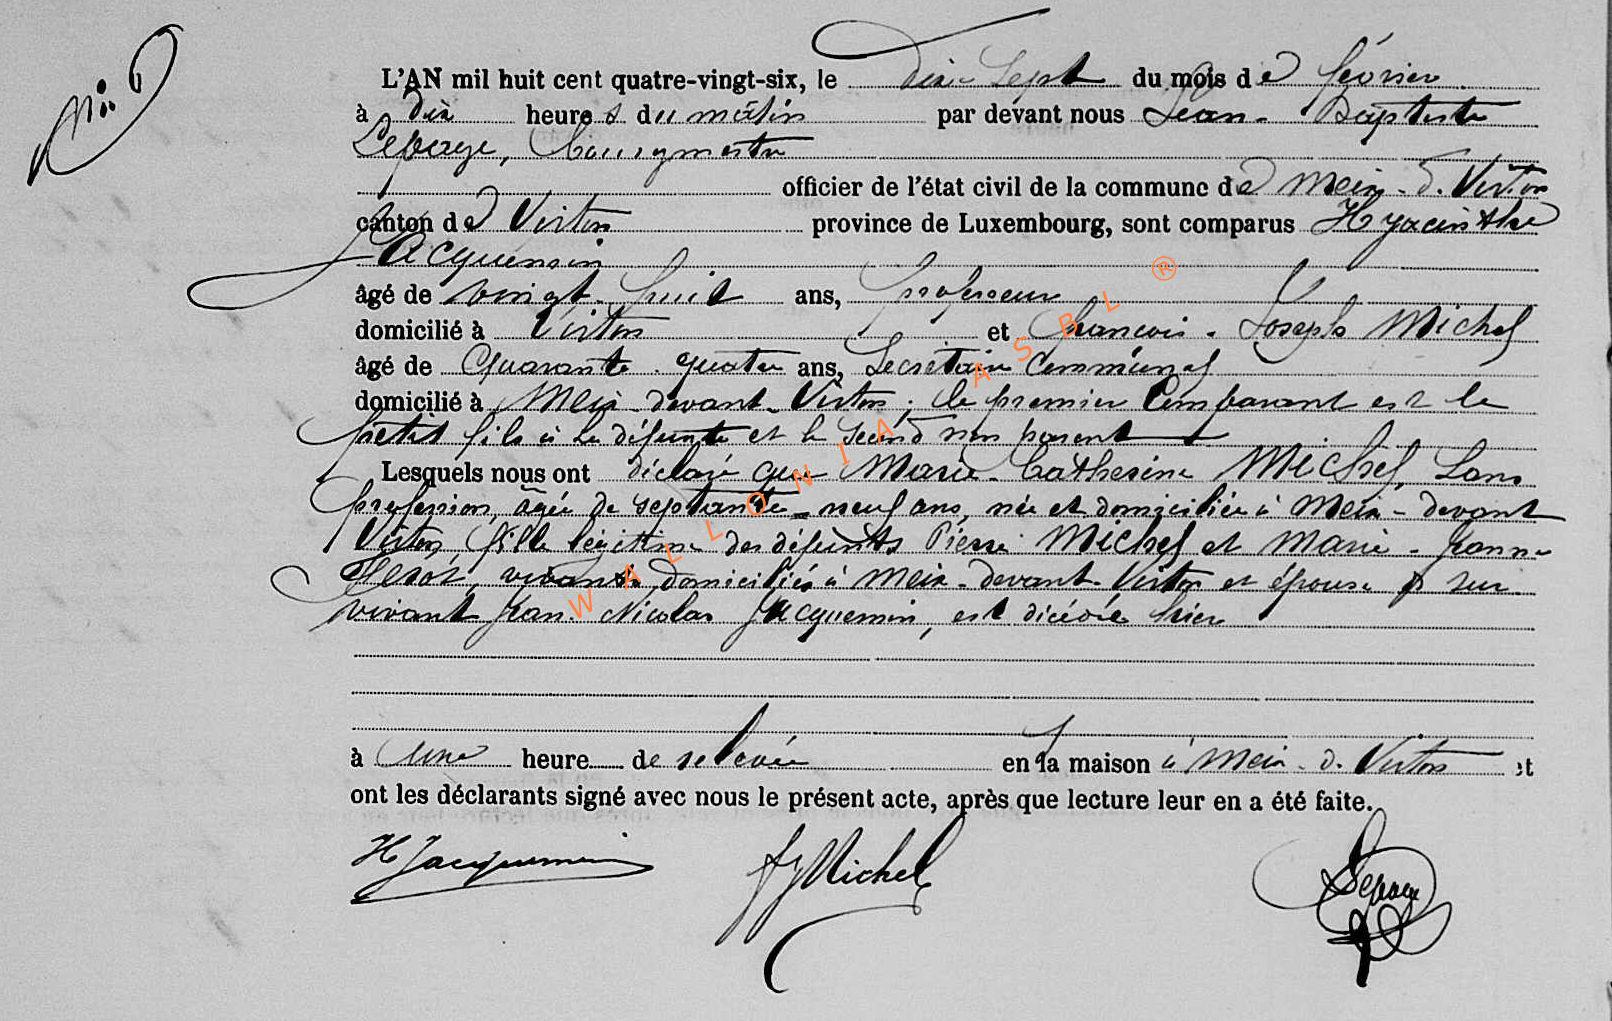 L'AN mil huit cent quatre-vingt-six, le dix-sept du mois de février
à dix heures du matin par devant nous Jean-Baptiste
Lepage, Bourgmestre
officier de l'état civil de la commune de Meix-d.-Virton
canton de Virton province de Luxembourg, sont comparus Hyacinthe
Jacquemin
âgé de vingt-huit ans, professeur
domicilié à Virton et François-Joseph Michel
âgé de quarante-quatre ans, Secrétaire Communal
domicilié à Meix-devant-Virton; le premier Comparant est le
petit fils à la défunte et le second non parent
Lesquels nous ont déclaré que Marie-Catherine Michel, Sans
profession, âgée de septante-neuf ans, née et domiciliée à Meix-devant
Virton, fille légitime des défunts Pierre Michel et Marie-Jeanne
vivants domiciliés à Meix-devant-Virton et épouse sur
vivant Jean-Nicolas Jacquemin, est décédée hier
à une heure de relevée en la maison à Meix-d.-Virton et
ont les déclarants signé avec nous le présent acte, après que lecture leur en a été faite.
H Jacquemin fj Michel Lepage
WALLONIA ASBL ®